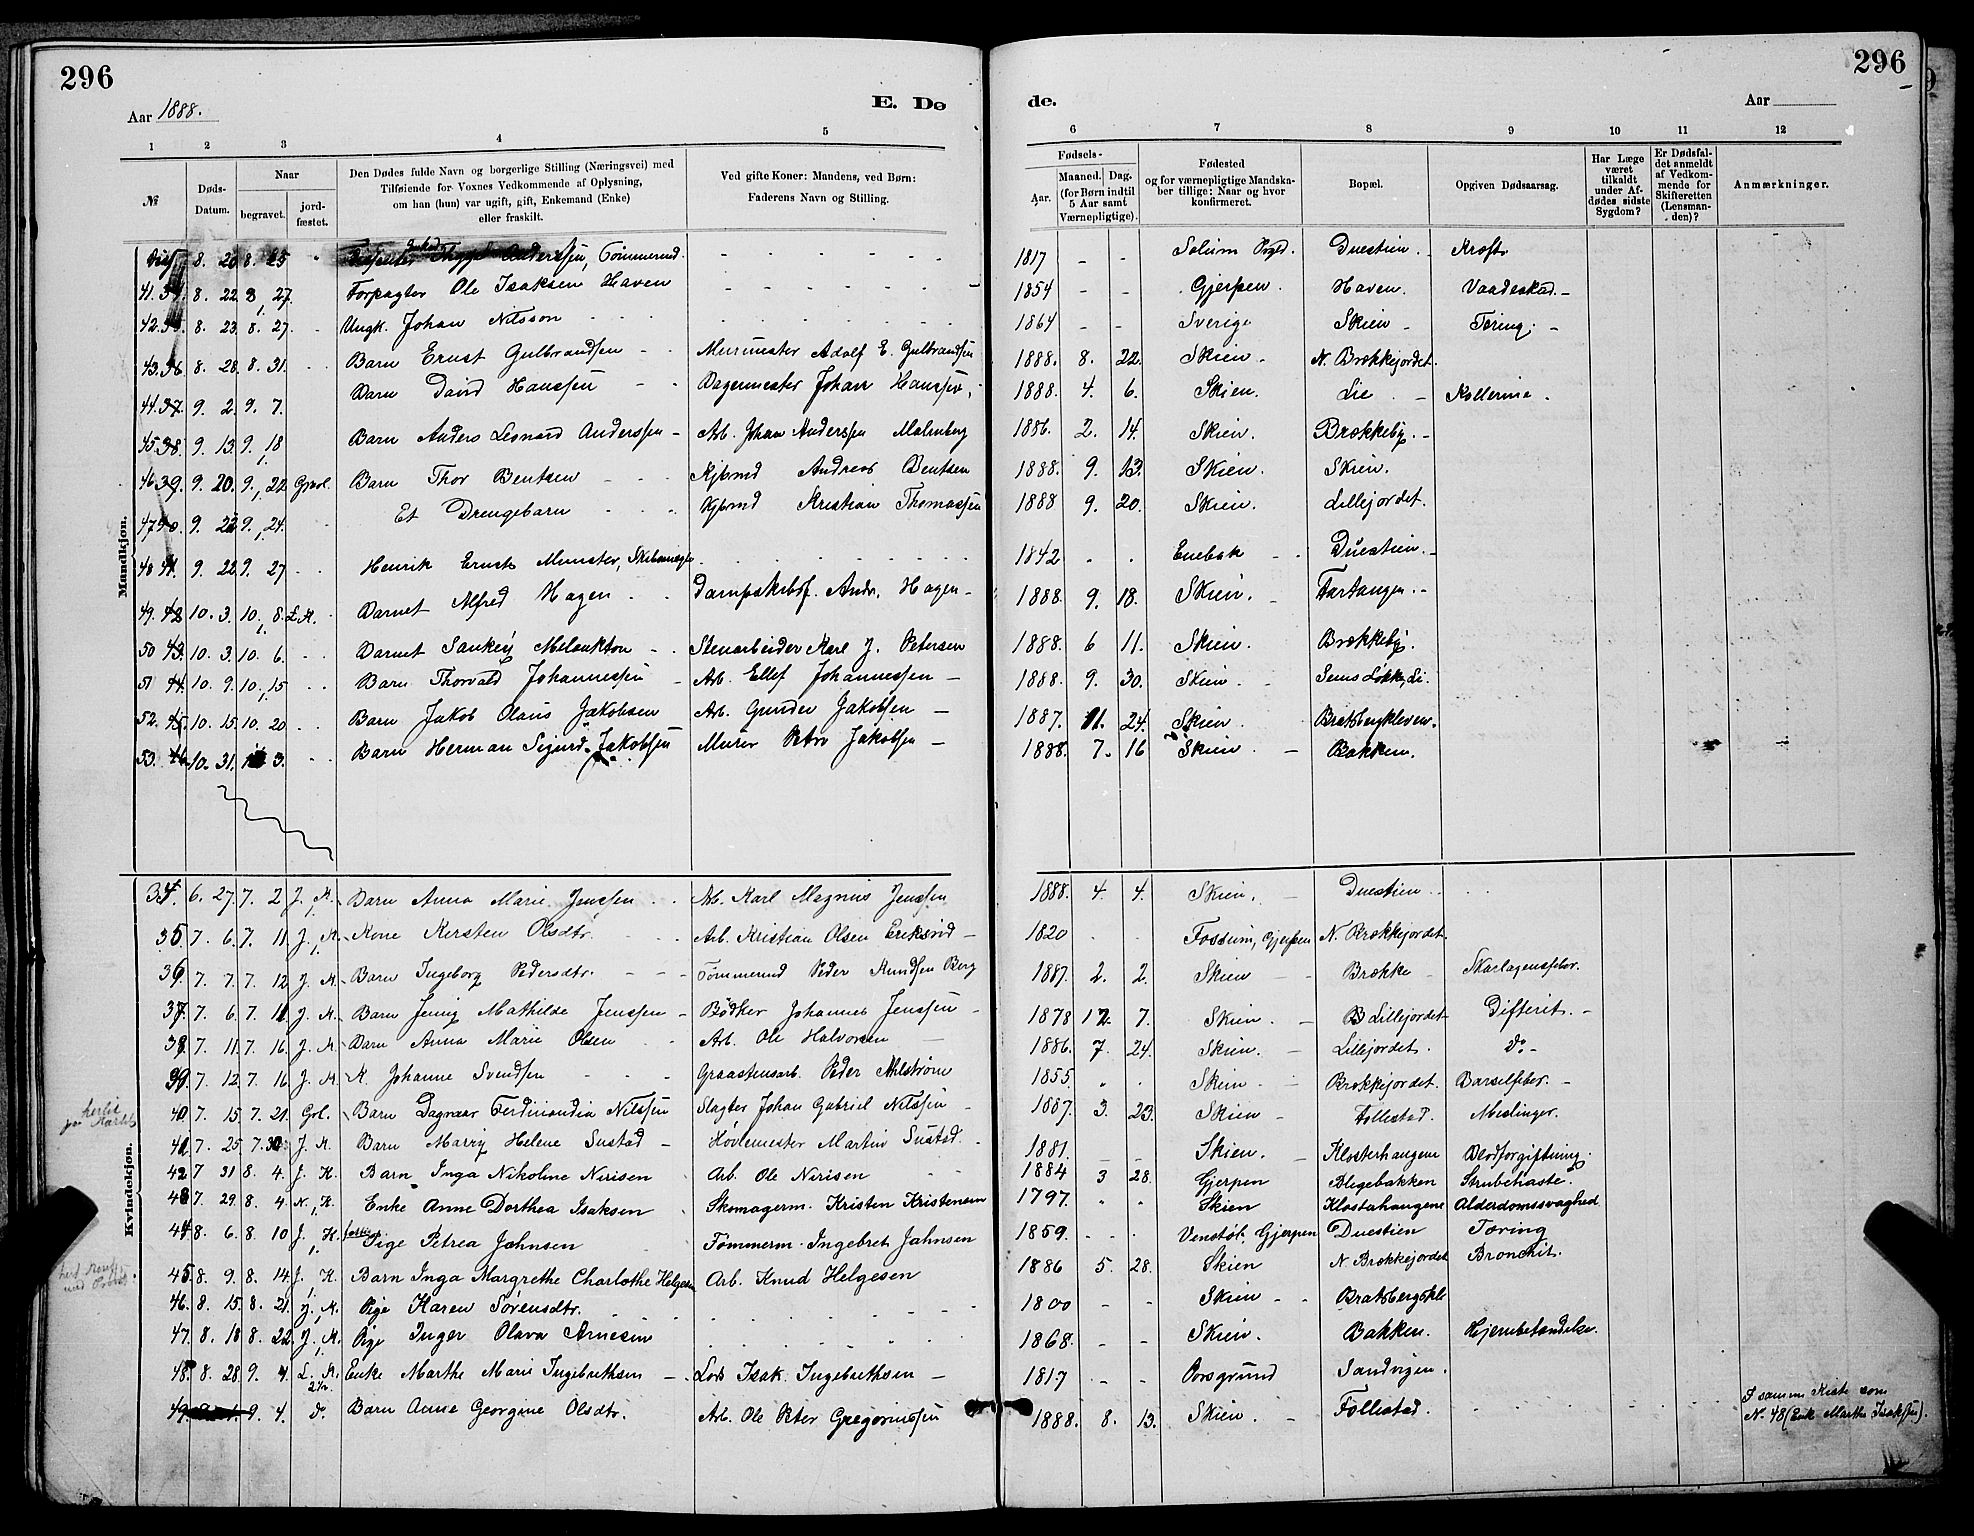 296
296
Aar 1888.
E. Dø
de.
Aar
1 2 3 4 5 6 7 8 9 10 11 12
№
Døds-Datum.
Naar
begravet.
jord-fæstet.
Den Dødes fulde Navn og borgerlige Stilling (Næringsvei) med
Tilføiende for Voxnes Vedkommende af Oplysning,
om han (hun) var ugift, gift, Enkemand (Enke)
eller fraskilt.
Ved gifte Koner: Mandens, ved Børn:
Faderens Navn og Stilling.
Fødsels-
Aar.
Maaned. Dag.
(for Børn indtil
5 Aar samt
Værnepligtige).
Fødested
og for værnepligtige Mandska-
ber tillige: Naar og hvor
konfirmeret.
Bopæl.
Opgiven Dødsaarsag.
Har Læge
været
tilkaldt
under Af-
dødes sidste
Sygdom?
Er Dødsfal-
det anmeldt
af Vedkom-
mende for
Skifteretten
(Lensman-
den)?
Anmærkninger.
Mandkjøn.
8. 20 8. 25 Anderssen, Tømmermd. 1817 - - Solum Prgd. Duestien. Kræft
41. 8. 22 8, 27. Forpagter Ole Isaksen Haven 1854 - - Gjerpen. Haven. Vaadeskud. -
42. 8. 23. 8. 27. Ungk. Johan Nilsson 1864 - - Sverige Skien - Tæring. -
43. 36. 8. 28. 8. 31. Barn Ernst Gulbrandsen Murmester Adolf E. Gulbrandsen 1888. 8. 22. Skien. N. Brækkejordet.
44. 37. 9. 2. 9. 7. Barn David Hanssen Bagermester Johan Hanssen 1888. 4. 6. Skien. Lie. Kollerine.
45. 38. 9. 13. 9. 18 Barn Anders Leonard Anderssen - Arb. Johan Anderssen Malmberg 1886. 2. 14. Skien. Brækkeby. -
46. 39. 9. 20. 9, 22. Gravl. Barn Thor Bentsen Kjbmd Andreas Bentsen 1888. 9. 13. Skien. Skien.
47. 40. 9. 22 9. 24. Et Drengebarn Kjbmd Kristian Thomassen 1888 9. 20. Skien. Lillejordet.
48 41. 9. 22. 9. 27 Henrik Ernst Munster, 1842 Enebak Duestien. -
49. 42 10. 3. 10, 8. L. K. Barnet Alfred Hagen Dampskibsf. Andr. Hagen - 1888. 9. 18. Skien. Fartangen. -
50 43. 10. 3. 10. 6. Barnet Sankey Melankton Stenarbeider Karl J. Petersen 1888. 6 11. Skien. Brækkeby.
51 44. 10. 9. 10, 15 Barn Thorvald Johannessen Arb. Ellef Johannessen - 1888. 9. 30. Skien. Sems Løkke, Li.
52. 45. 10. 15. 10. 20 Barn Jakob Olaus Jakobsen Arb. Gunder Jakobsen - 1887. 11. 24. Skien. Bratsbergkleven.
53. 46. 10. 31. 3. Barn Herman Sigurd Jakobsen Murer Petro Jakobsen - 1888. 7. 16 Skien. - Bakken.
Kvindekjøn.
34. 6. 27. 7. 2 J. K. Barn Anna Marie Jenssen Arb. Karl Magnus Jenssen 1888. 4. 4. Skien. Duestien
35. 7. 6. 7. 11 J. K. Kone Kersten Olsdtr. Arb. Kristian Olsen Eriksrød - 1820 Fossum, Gjerpen N. Brækkejordet.
36. 7. 7. 7. 12 J. K. Barn Ingeborg Pedersdtr. Tømmermd Peder Knudsen Berg 1887. 2. 2. Skien Brække Skarlagensfeber.
37. 7. 6. 7. 11 J. K. Barn Jenny Mathilde Jenssen - Bødker Johannes Jenssen 1878 12. 7. Skien. Lillejordet Difterit. -
38. 7. 11. 7. 16. J. K. Barn Anna Marie Olsen Arb. Ole Halvorsen 1886. 7. 24. Skien. Lillejordet. Do -
39. 7. 12. 7. 16 J. K. K. Johanne Svendsen Graastensarb. Peder Ahlstrøm 1855. Skien Brækkejordet. Barselfeber. -
40. 7. 15. 7. 21. Grl. Barn Dagmar Ferdinandia Nilssen Slagter Johan Gabriel Nilssen 1887. 3. 23. Skien - Follestad. Meslinger.
41 7. 25. 7. 30 J. K. Barn Marry Helene Sustad - Høvlemester Martin Sustad. 1881. Skien. Klosterhaugene Blodforgiftning.
42 7 31 8. 4. J. K. Barn Inga Nikoline Nirisen Arb. Ole Nirisen 1884 3 28. Gjerpen Bligebakken Strubehoste.
43 7. 29. 8. 4. N. K. Enke Anne Dorthea Isaksen Skomagerm. Kristen Kristensen 1797. Skien Klosterhaugene Alderdomssvaghed
44 8. 6. 8. 10 J. K. Pige Petrea Jahnsen Tømmerm. Ingebret Jahnsen 1859. Venstøb, Gjerpen Duestien Tæring
45. 8. 9. 8. 14 J. K. Barn Inga Margrethe Charlothe Helgesen Arb. Knud Helgesen 1886 5. 28. Skien N. Brækkejordet Bronchit.
46. 8. 15. 8. 21. J. K. Pige Karen Sørensdtr. 1800 - - Skien - Bratsbergskle
47. 8. 18 8. 22 J. K. Pige Inger Olava Arnesen 1868. - - Skien. Bakken. Hjernebetændelse.
48. 8. 28. 9. 4. L. K. Enke Marthe Marie Ingebrethsen - Lods Isak Ingebrethsen - 1817 - - Porsgrund Sandvigen.
49. 9. 4. Do Barn Anne Georgine Olsdtr. Arb. Ole Peter Gregoriussen 1888. 8. 13. Skien. - Follestad.
I samme Kiste som
No 48 (Enke Marthe Isaksen).